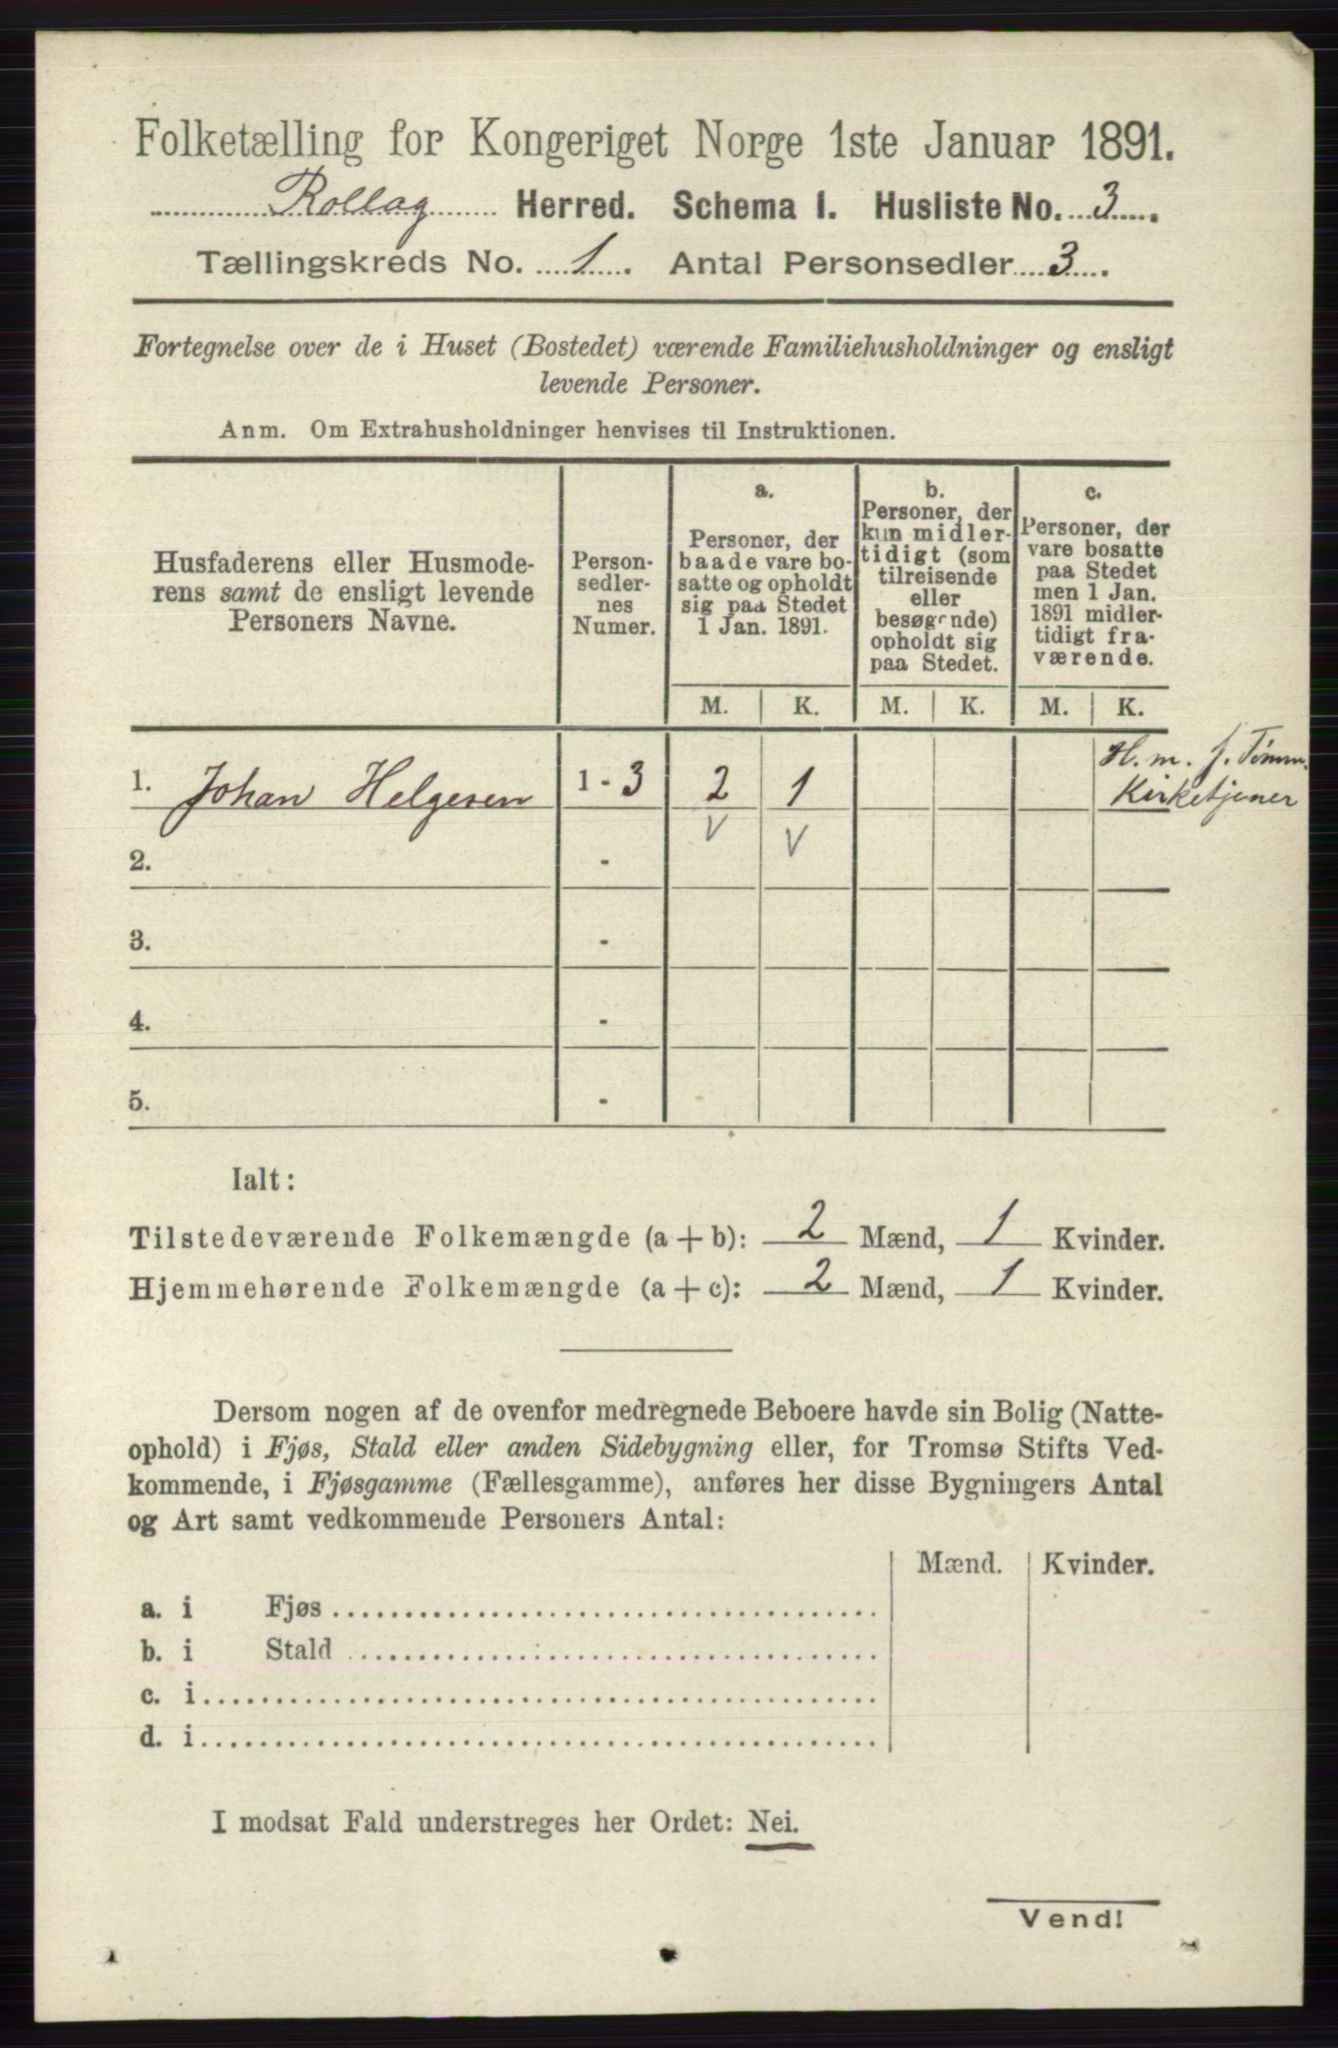 Folketælling for Kongeriget Norge 1ste Januar 1891.
Rollag Herred. Schema I. Husliste No. 3.
Tællingskreds No. 1. Antal Personsedler 3.
Fortegnelse over de i Huset (Bostedet) værende Familiehusholdninger og ensligt
levende Personer.
Anm. Om Extrahusholdninger henvises til Instruktionen.
Husfaderens eller Husmode-
rens samt de ensligt levende
Personers Navne.
Person-
sedler-
nes
Numer.
a.
Personer, der
baade vare bo-
satte og opholdt
sig paa Stedet
1 Jan. 1891.
b.
Personer, der
kun midler-
tidigt (som
tilreisende
eller
besøgende)
opholdt sig
paa Stedet.
c.
Personer, der
vare bosatte
paa Stedet
men 1 Jan.
1891 midler-
tidigt fra-
værende.
M. K. M. K. M. K.
1. Johan Helgesen 1 - 3 2 1 H. m. f. Tømm.
Kirketjener
2. - V V
3. -
4. -
5. -
Ialt:
Tilstedeværende Folkemængde (a + b): 2 Mænd, 1 Kvinder.
Hjemmehørende Folkemængde (a + c): 2 Mænd, 1 Kvinder.
Dersom nogen af de ovenfor medregnede Beboere havde sin Bolig (Natte-
ophold) i Fjøs, Stald eller anden Sidebygning eller, for Tromsø Stifts Ved-
kommende, i Fjøsgamme (Fællesgamme), anføres her disse Bygningers Antal
og Art samt vedkommende Personers Antal:
Mænd. Kvinder.
a. i Fjøs
b. i Stald
c. i
d. i
I modsat Fald understreges her Ordet: Nei.
Vend!